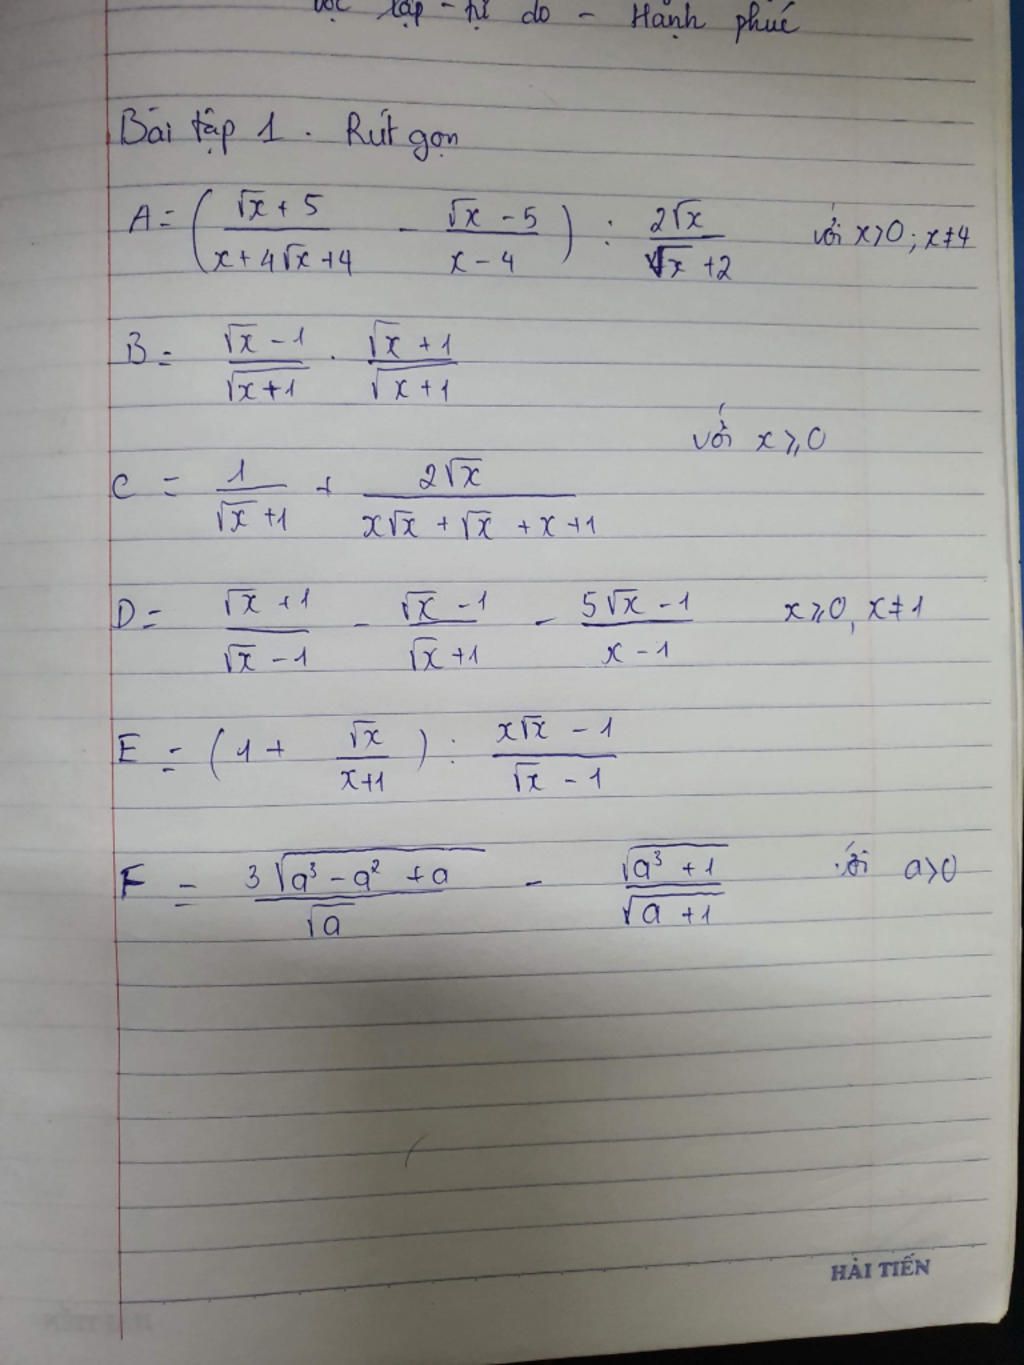 lập - tự do - Hạnh phúc
Bài tập 1. Rút gọn
A = ( (√x + 5)/(x + 4√x + 4) - (√x - 5)/(x - 4) ) : 2√x/(√x + 2) với x>0; x≠4
B = (√x - 1)/√(x+1) . (√x + 1)/√(x+1)
với x ≥ 0
C = 1/(√x + 1) + 2√x/(x√x + √x + x + 1)
D = (√x + 1)/(√x - 1) - (√x - 1)/(√x + 1) - (5√x - 1)/(x - 1) x ≥ 0, x ≠ 1
E = (1 + √x/(x+1)) : (x√x - 1)/(√x - 1)
F = 3√(a³ - a² + a)/√a - √(a³ + 1)/√(a + 1) với a>0
HẢI TIẾN